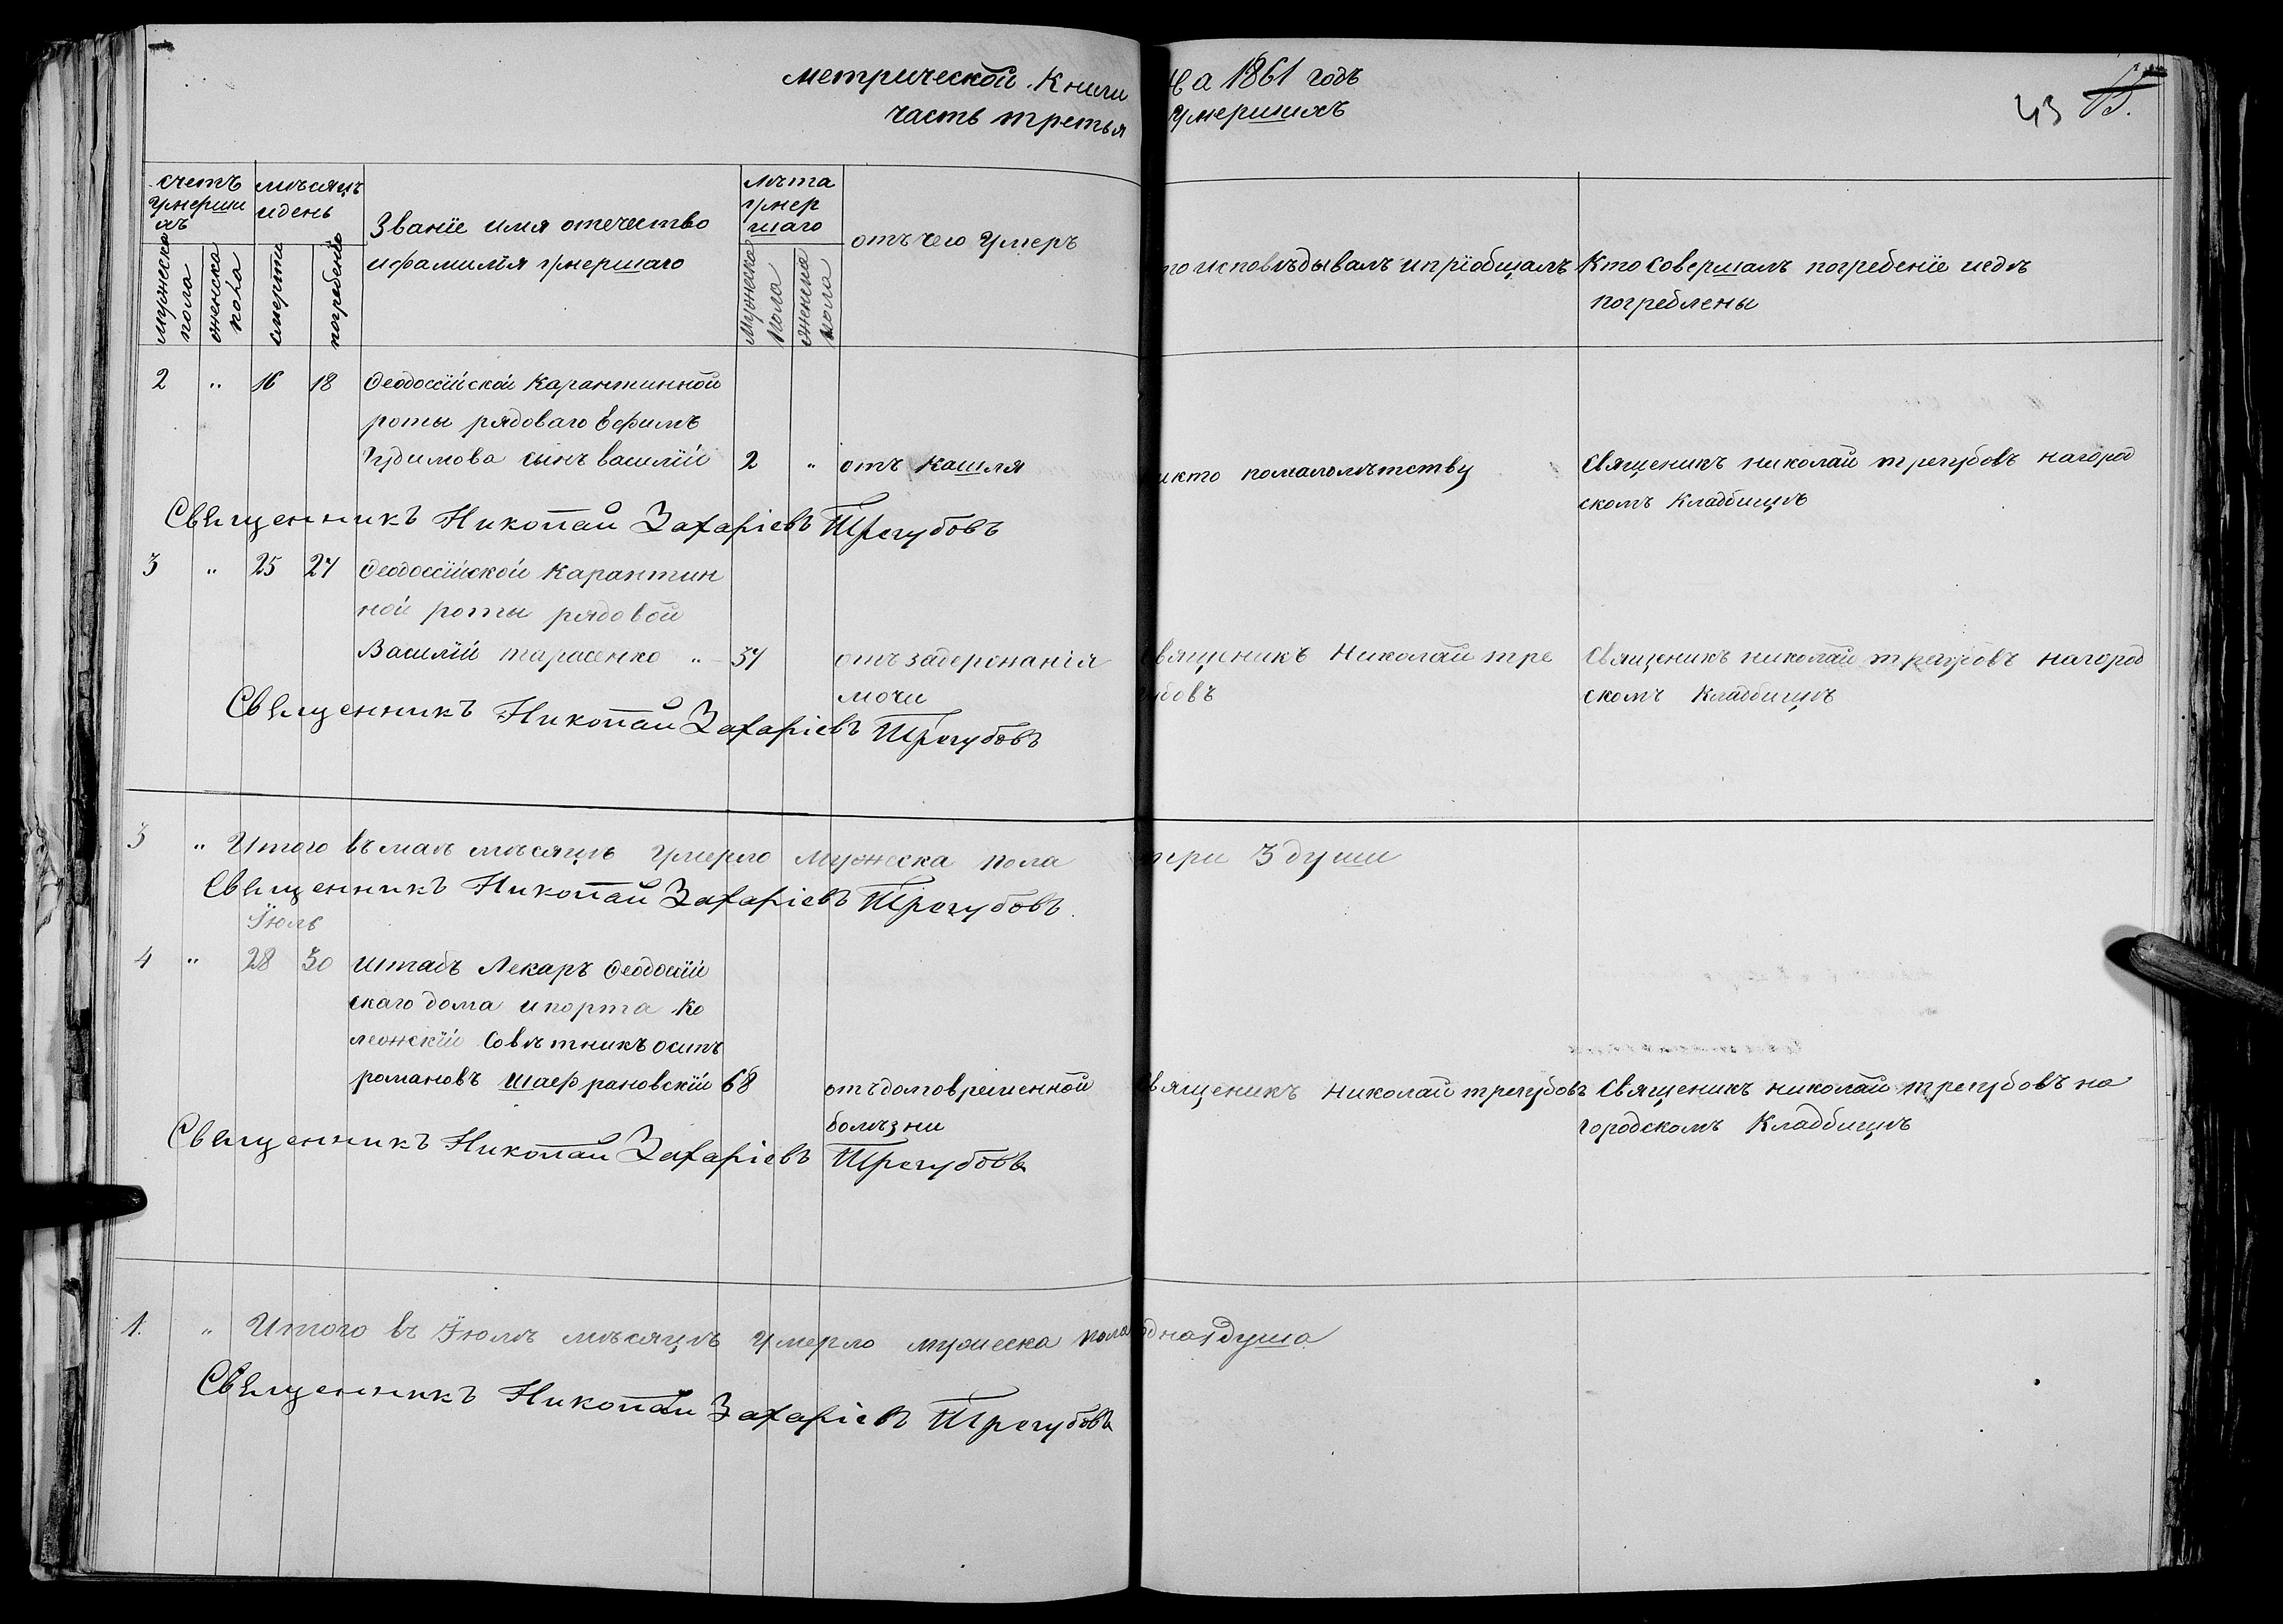 метрической Книги на 1861 годъ
часть третья умершихъ
43 15.
счетъ умерши хъ
мужеска пола
женска пола
мѣсяцъ и день
смерти
погребенія
Званіе имя отечество
и фамилія умершаго
лѣта умер шаго
мужеска пола
женска пола
отъ чего умеръ
то исповѣдывалъ и пріобщалъ
Кто совершалъ погребеніе и гдѣ
погреблены
2 " 16 18 Феодосійской Карантинной
роты рядоваго Ефимъ
Гудимова сынъ василій 2 " отъ кашля
икто помалолѣтству
Священикъ николай трегубовъ нагород
скомъ Кладбищѣ
Священникъ Николай Захаріевъ Трегубовъ
3 " 25 27 Феодосійской Карантин
ной роты рядовой
Василій тарасенко " 37 отъ задержанія
мочи
священикъ Николай тре
губовъ
Священикъ николай трегубовъ нагород
скомъ Кладбищѣ
Священникъ Николай Захаріевъ Трегубовъ
3 " Итого въ маѣ мѣсяцѣ умерло мужеска пола три 3 души
Священникъ Николай Захаріевъ Трегубовъ.
Іюль
4 " 28 30 штабъ Лекаръ Феодосій
скаго дома и порта Ко
лежскій Совѣтникъ осипъ
романовъ шафрановскій 68 отъ долговременной
болѣзни
священикъ Николай трегубовъ
Священикъ николай трегубовъ на
городскомъ Кладбищѣ
Священникъ Николай Захаріевъ Трегубовъ
1. " Итого въ Іюлѣ мѣсяцѣ умерло мужеска пола одна 1 душа
Священникъ Николай Захаріевъ Трегубовъ